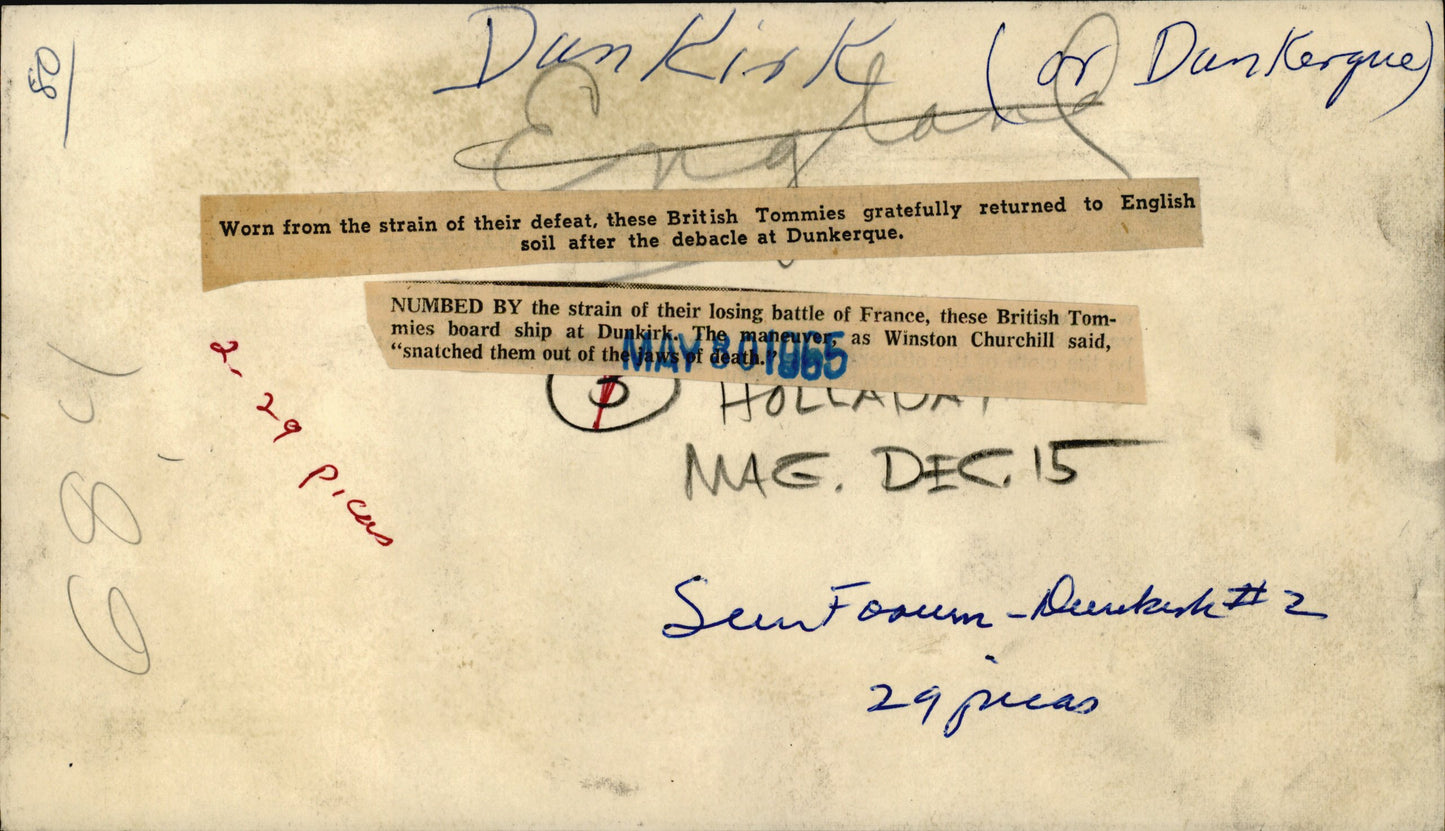 Dunkirk (or Dunkerque)
England
Worn from the strain of their defeat, these British Tommies gratefully returned to English
soil after the debacle at Dunkerque.
NUMBED BY the strain of their losing battle of France, these British Tom-
mies board ship at Dunkirk. The maneuver, as Winston Churchill said,
“snatched them out of the jaws of death.”
MAY 30 1965
3 HOLLADAY
MAG. DEC. 15
2-29 picas
Sun Forum - Dunkirk #2
29 picas